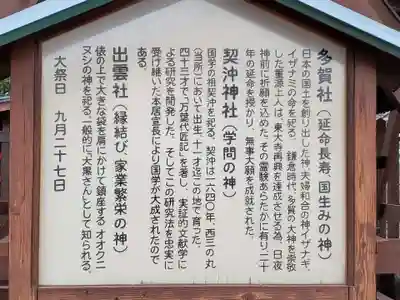 多賀社（延命長寿、国生みの神）
日本の国土を創り出した神、夫婦和合の神イザナギ、
イザナミの命を祀る。鎌倉時代、多賀の大神を崇敬
した重源上人は、東大寺再興を達成させる為、日夜
神前に祈願を込めた。その霊験あらたかに有り、二十
年の延命を授かり、無事大願を成就された。
契沖神社（学問の神）
国学の祖契沖を祀る。契沖は一六四〇年、西三の丸
（当所）において出生、十一才迄この地で育った。
四十三才で「万葉代匠記」を著し、実証的文献学に
よる研究を開発した。そしてこの研究法を忠実に
受け継いだ本居宣長により国学が大成されたので
ある。
出雲社（縁結び、家業繁栄の神）
俵の上で大きな袋を肩にかけて鎮座する、オオクニ
ヌシの神を祀る。一般的に「大黒さん」として知られる。
大祭日　九月二十七日